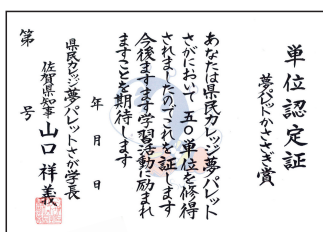 単位認定証
夢パレットかささぎ賞
あなたは県民カレッジ夢パレット
さがにおいて五〇単位を修得
されましたのでこれを証します
今後ますます学習活動に励まれ
ますことを期待します
年 月 日
県民カレッジ夢パレットさが学長
佐賀県知事 山口祥義
第 号